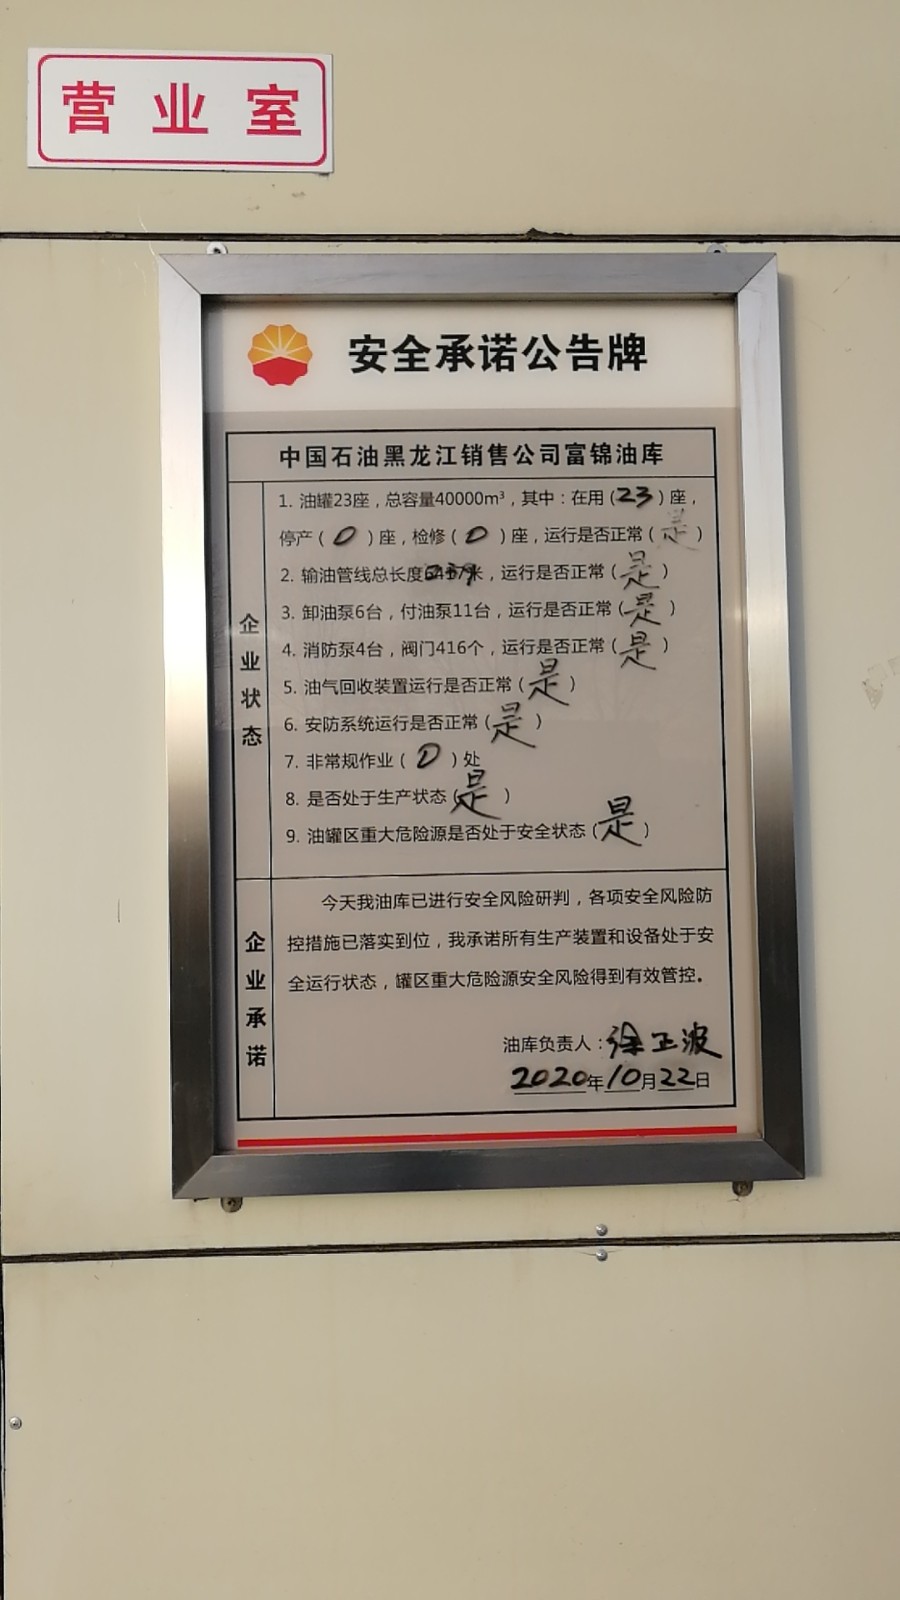 营业室
安全承诺公告牌
中国石油黑龙江销售公司富锦油库
企业状态
1. 油罐23座，总容量40000m³，其中：在用(23)座，
停产(0)座，检修(0)座，运行是否正常(是)
2. 输油管线总长度米，运行是否正常(是)
3. 卸油泵6台，付油泵11台，运行是否正常(是)
4. 消防泵4台，阀门416个，运行是否正常(是)
5. 油气回收装置运行是否正常(是)
6. 安防系统运行是否正常(是)
7. 非常规作业(0)处
8. 是否处于生产状态(是)
9. 油罐区重大危险源是否处于安全状态(是)
企业承诺
今天我油库已进行安全风险研判，各项安全风险防
控措施已落实到位，我承诺所有生产装置和设备处于安
全运行状态，罐区重大危险源安全风险得到有效管控。
油库负责人：徐正波
2020年10月22日